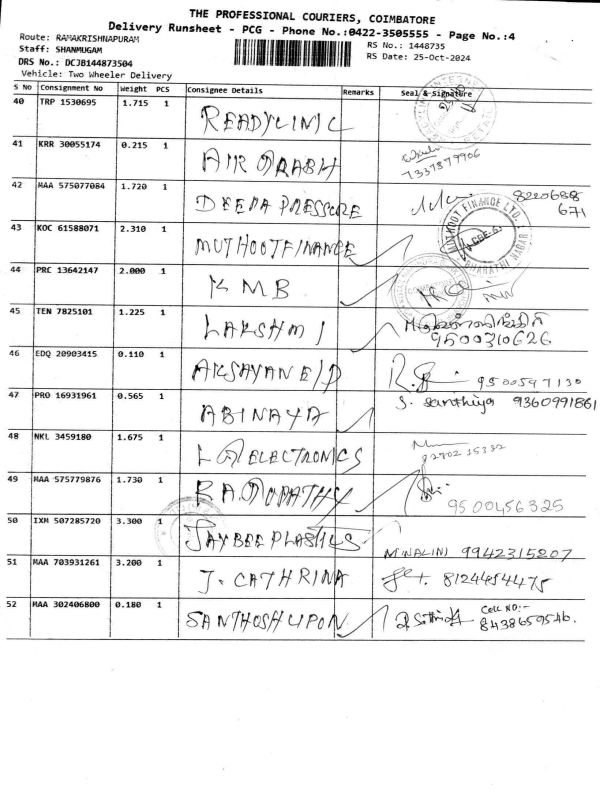 THE PROFESSIONAL COURIERS, COIMBATORE
Delivery Runsheet - PCG - Phone No.:0422-3505555 - Page No.:4
Route: RAMAKRISHNAPURAM
RS No.: 1448735
Staff: SHANMUGAM
RS Date: 25-Oct-2024
DRS No.: DCJB144873504
Vehicle: Two Wheeler Delivery
S No Consignment No Weight PCS Consignee Details Remarks Seal & Signature
40 TRP 1530695 1.715 1 READYCLINIC
41 KRR 30055174 0.215 1 7337879906
42 MAA 575077084 1.720 1 DEEPA PRESSURE 8220688
671
43 KOC 61588071 2.310 1 MUTHOOT FINANCE MUTHOOT FINANCE LTD. BHARATHI NAGAR
44 PRC 13642147 2.000 1 KMB
45 TEN 7825101 1.225 1 LAKSHMI 9500310626
46 EDQ 20903415 0.110 1 9500597130
47 PRO 16931961 0.565 1 ABINAYA S. Santhiya 9360991861
48 NKL 3459180 1.675 1 ELECTRONICS
49 MAA 575779876 1.730 1 9500456325
50 IXM 507285720 3.300 1 JAYBEE PLASTICS M.NALINI 9942315207
51 MAA 703931261 3.200 1 J. CATHRINA 8124454475
52 MAA 302406800 0.180 1 SANTHOSH UPON Cell NO:-
8438659546.